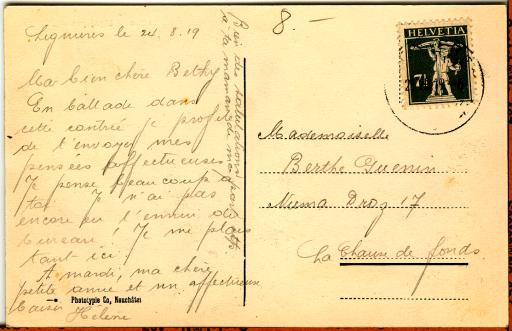 Lignières le 24.8.19
Ma bien chère Bethy
En ballade dans
cette contrée je profite
de t'envoyer mes
pensées affectueuses.
Je pense beaucoup à
toi. Je n'ai pas
encore eu l'ennui du
bureau! Je me plais
tant ici!
A mardi, ma chère
petite amie et un affectueux
baiser
Hélène
Phototypie Co, Neuchâtel
Bien des salutations pour
à ta maman de ma
8. —
HELVETIA
7½
Mademoiselle
Berthe Guenin
Numa Droz 17
La Chaux de fonds